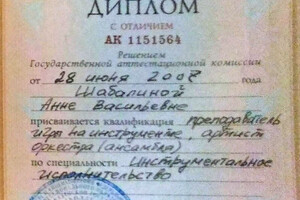 ДИПЛОМ
С ОТЛИЧИЕМ
АК 1151564
Решением
Государственной аттестационной комиссии
от 28 июня 2007 года
Шабалиной
Анне Васильевне
присваивается квалификация преподаватель
игры на инструменте, артист
оркестра (ансамбля)
по специальности Инструментальное
исполнительство